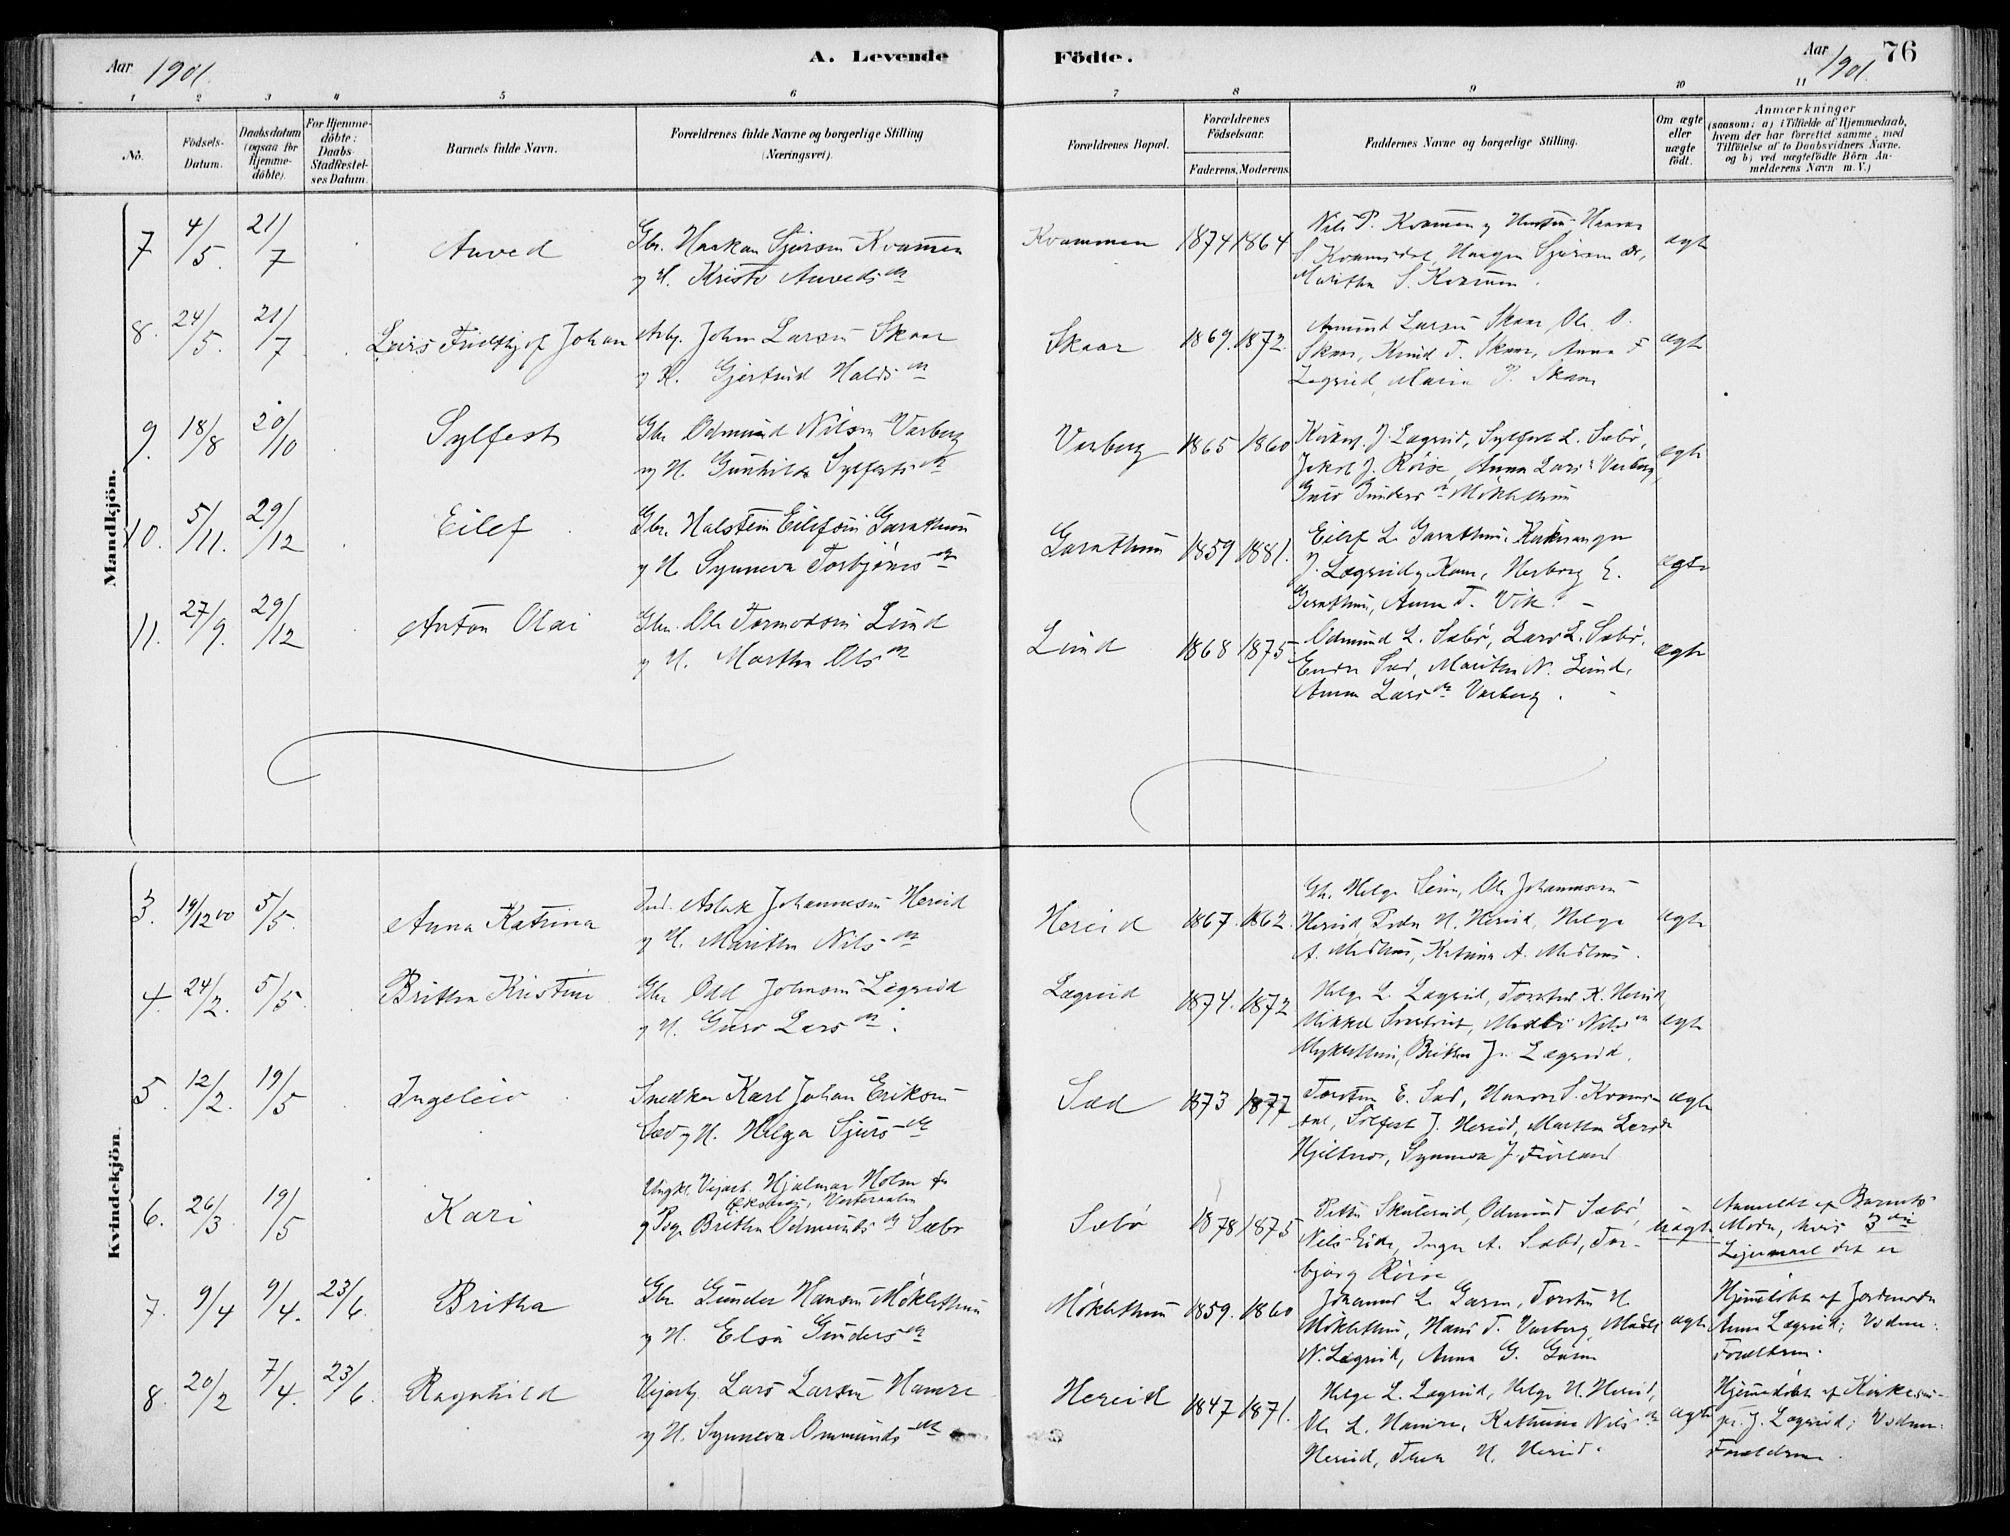 Aar 1901.
A. Levende Födte.
Aar 1901. 76
1 2 3 4 5 6 7 8 9 10 11
No.
Födsels-
Datum.
Daabsdatum
(ogsaa for
Hjemme-
döbte).
For Hjemme-
döbte:
Daabs-
Stadfæstel-
ses Datum.
Barnets fulde Navn.
Forældrenes fulde Navne og borgerlige Stilling
(Næringsvei).
Forældrenes Bopæl.
Forældrenes
Födselsaar.
Faderens. Moderens.
Faddernes Navne og borgerlige Stilling.
Om ægte
eller
uægte
födt.
Anmærkninger
(saasom: a) i Tilfælde af Hjemmedaab,
hvem der har forrettet samme, med
Tilföielse af to Daabsvidners Navne,
og b) ved uægtefödte Börn An-
melderens Navn m. V.)
Mandkjön.
7 4/5. 21/7 Anved
Gbr. Haakon Sjursen Kvammen
og H. Kristi Anvedsdr
Kvammen 1874 1864
Nils P. Kvammen og Hustru, Hans
S Kvamsdal, Haagen Sjursen
Maritha S. Kvammen.
ægte
8. 24/5. 21/7 Lars Fridthjof Johan
Arb. Johan Larsen Skaar
og H. Gjertrud Haldsdr
Skaar 1869. 1872.
Amund Larsen Skaar, Ole O.
Skaar, Knud T. Skaar, Anna T
Lægreid, Maria P. Skaar
ægte
9. 18/8 20/10 Sylfest
Gbr Odmund Nilsen Varberg
og H. Gunhilda Sylfestsdr
Varberg 1865 1860
Kirkes. J. Lægreid, Sylfest L. Sæbø,
Jakob J. Røise, Anna Lars Varberg,
Guro Gundersdr Møklethun
ægte
10. 5/11. 29/12 Eilef
Gbr. Halstein Eilefsen Garathun
og H. Synneva Torbjørnsdr
Garathun 1859 1881.
Eilef L. Garathun, Kirkesanger
J. Lægreid og Kone, Herborg E.
Garathun, Anna T. Vik.
ægte
11. 27/9. 29/12 Anton Olai
Gbr. Ole Tormodsen Lund
og H. Martha Olsdr
Lund 1868 1875
Odmund L. Sæbø, Lars L. Sæbø,
Endre Sæd, Maritha N. Lund,
Anna Larsdr Varberg.
ægte
Kvindekjön.
3. 19/12 00 5/5. Anna Katrina
Ind. Aslak Johannesen Hereid
og H. Maritha Nilsdr
Hereid 1867. 1862.
Gbr. Helge Seim, Ole Johannesen
Hereid, Peder H. Hereid, Helga
A. Medhus, Katrina A. Medhus.
ægte
4. 24/2. 5/5. Britha Kristine
Gbr Odd Johnsen Lægreid
og H. Guro Larsdr.
Lægreid 1874. 1872
Helge L. Lægreid, Torstein K. Hereid,
Mikkel, Madli Nilsdr
Myklethun, Britha J. Lægreid.
ægte
5. 12/2. 19/5 Ingeleiv
Snedker Karl Johan Eriksen
Sæd og H. Helga Sjursdr
Sæd 1873 1877
Torstein E. Sæd, Hans S. Kvams-
dal, Sylfest J. Hereid, Martha Larsdr
Hjeltnes, Synneva J. Furland
ægte
6. 26/3 19/5 Kari
Ungk. Vejarb. Hjalmar Holm fra
Eksnæs, Vesteraalen
og Pige Britha Odmundsdr Sæbø
Sæbø 1878 1875
Petter Skulerud, Odmund Sæbø,
Nils Eide, Inger A. Sæbø, Tor-
bjørg Røise
uægte
Anmeldt af Barnets
Moder, hvis 3die
Lejermaal det er
7. 9/4 9/4. 23/6. Britha
Gbr Gunder Hansen Møklethun
og H. Elsa Gundersdr
Møklethun 1859. 1860
Johannes L. Garen, Torstein H.
Møklethun, Hans T. Varberg, Madli
N. Lægreid, Anna G. Garen
ægte
Hjemmedøbt af Jordemoder
Anna Lægreid; Vidner:
Forældrene.
8. 20/2 7/4. 23/6. Ragnhild
Vejarb. Lars Larsen Hamre
og H. Synneva Ommundsdr
Hereid 1847 1871.
Helge L. Lægreid, Helge H. Hereid,
Ole L. Hamre, Kathrina Nilsdr
Hereid, Thea H. Hereid.
ægte
Hjemmedøbt af Kirkesan-
ger J. Lægreid; Vidner:
Forældrene.